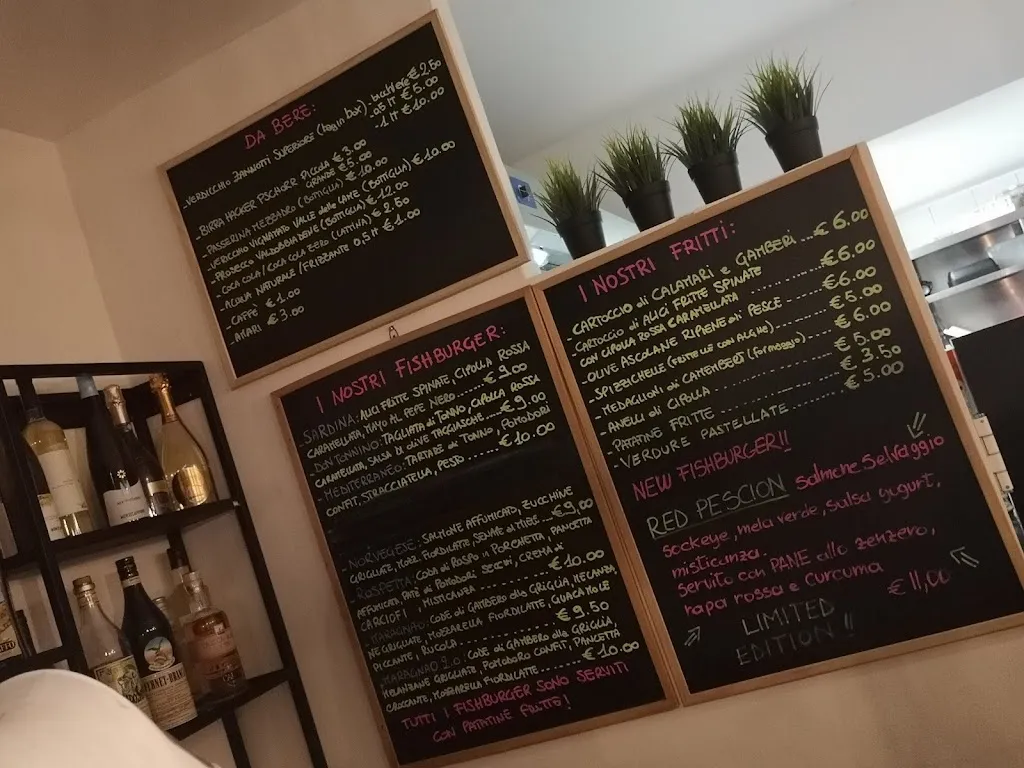 DA BERE:
-VERDICCHIO ZANNOTTI SUPERIORE (bag in box). bicchiere € 2.50
-0.5 lt € 5.00
-1 lt € 10.00
-BIRRA HACKER PSCHORR PICCOLA € 3.00
GRANDE € 5.00
-PASSERINA MEZZADRO (BOTTIGLIA) € 10.00
-VERDICCHIO VIGNAMATO VALLE delle LAME (BOTTIGLIA) € 10.00
-PROSECCO VALDOBBIADENE (BOTTIGLIA) € 12.00
-COCA COLA / COCA COLA ZERO (LATTINA) € 2.50
-ACQUA NATURALE / FRIZZANTE 0,5 lT € 1.00
-CAFFÈ € 1.00
-AMARI € 3.00
I NOSTRI FISHBURGER:
-SARDINA: ALICI FRITTE SPINATE, CIPOLLA ROSSA
CARAMELLATA, MAYO AL PEPE NERO ... € 9.00
-DON TONNINO: TAGLIATA di TONNO, CIPOLLA ROSSA
CARAMELLATA, SALSA DI OLIVE TAGGIASCHE ... € 9.00
-MEDITERRANEO: TARTARE di TONNO, POMODORI
CONFIT, STRACCIATELLA, PESTO ... € 10.00
-NORVEGESE: SALMONE AFFUMICATO, ZUCCHINE
GRIGLIATE, MOZZ. FIORDILATTE, SENAPE al MIELE ... € 9,00
-ROSPETTA: CODA di ROSPO in PORCHETTA, PANCETTA
AFFUMICATA, PATÈ di POMODORI SECCHI, CREMA di
CARCIOFI, MISTICANZA ... € 10.00
-MARAGNAO: CODE di GAMBERO alla GRIGLIA, MELANZA,
NE GRIGLIATE, MOZZARELLA FIORDILATTE, GUACAMOLE
PICCANTE, RUCOLA ... € 9.50
-MARAGNAO 2.0: CODE di GAMBERO alla GRIGLIA,
MELANZANE GRIGLIATE, POMODORO CONFIT, PANCETTA
CROCCANTE, MOZZARELLA FIORDILATTE ... € 10.00
TUTTI I FISHBURGER SONO SERVITI
CON PATATINE FRITTE!
I NOSTRI FRITTI:
-CARTOCCIO di CALAMARI e GAMBERI ... € 6.00
-CARTOCCIO di ALICI FRITTE SPINATE
CON CIPOLLA ROSSA CARAMELLATA ... € 6.00
-OLIVE ASCOLANE RIPIENE di PESCE ... € 6.00
-SPIZZICHELLE (FRITTELLE CON ALGHE) ... € 6.00
-MEDAGLIONI di CAMEMBERT (formaggio) ... € 6.00
-ANELLI di CIPOLLA ... € 5.00
-PATATINE FRITTE ... € 3.50
-VERDURE PASTELLATE ... € 5.00
NEW FISHBURGER!!
RED PESCION salmone selvaggio
sockeye, mela verde, salsa yogurt,
misticanza.
servito con PANE allo zenzero,
rapa rossa e curcuma
€ 11,00
LIMITED
EDITION!!